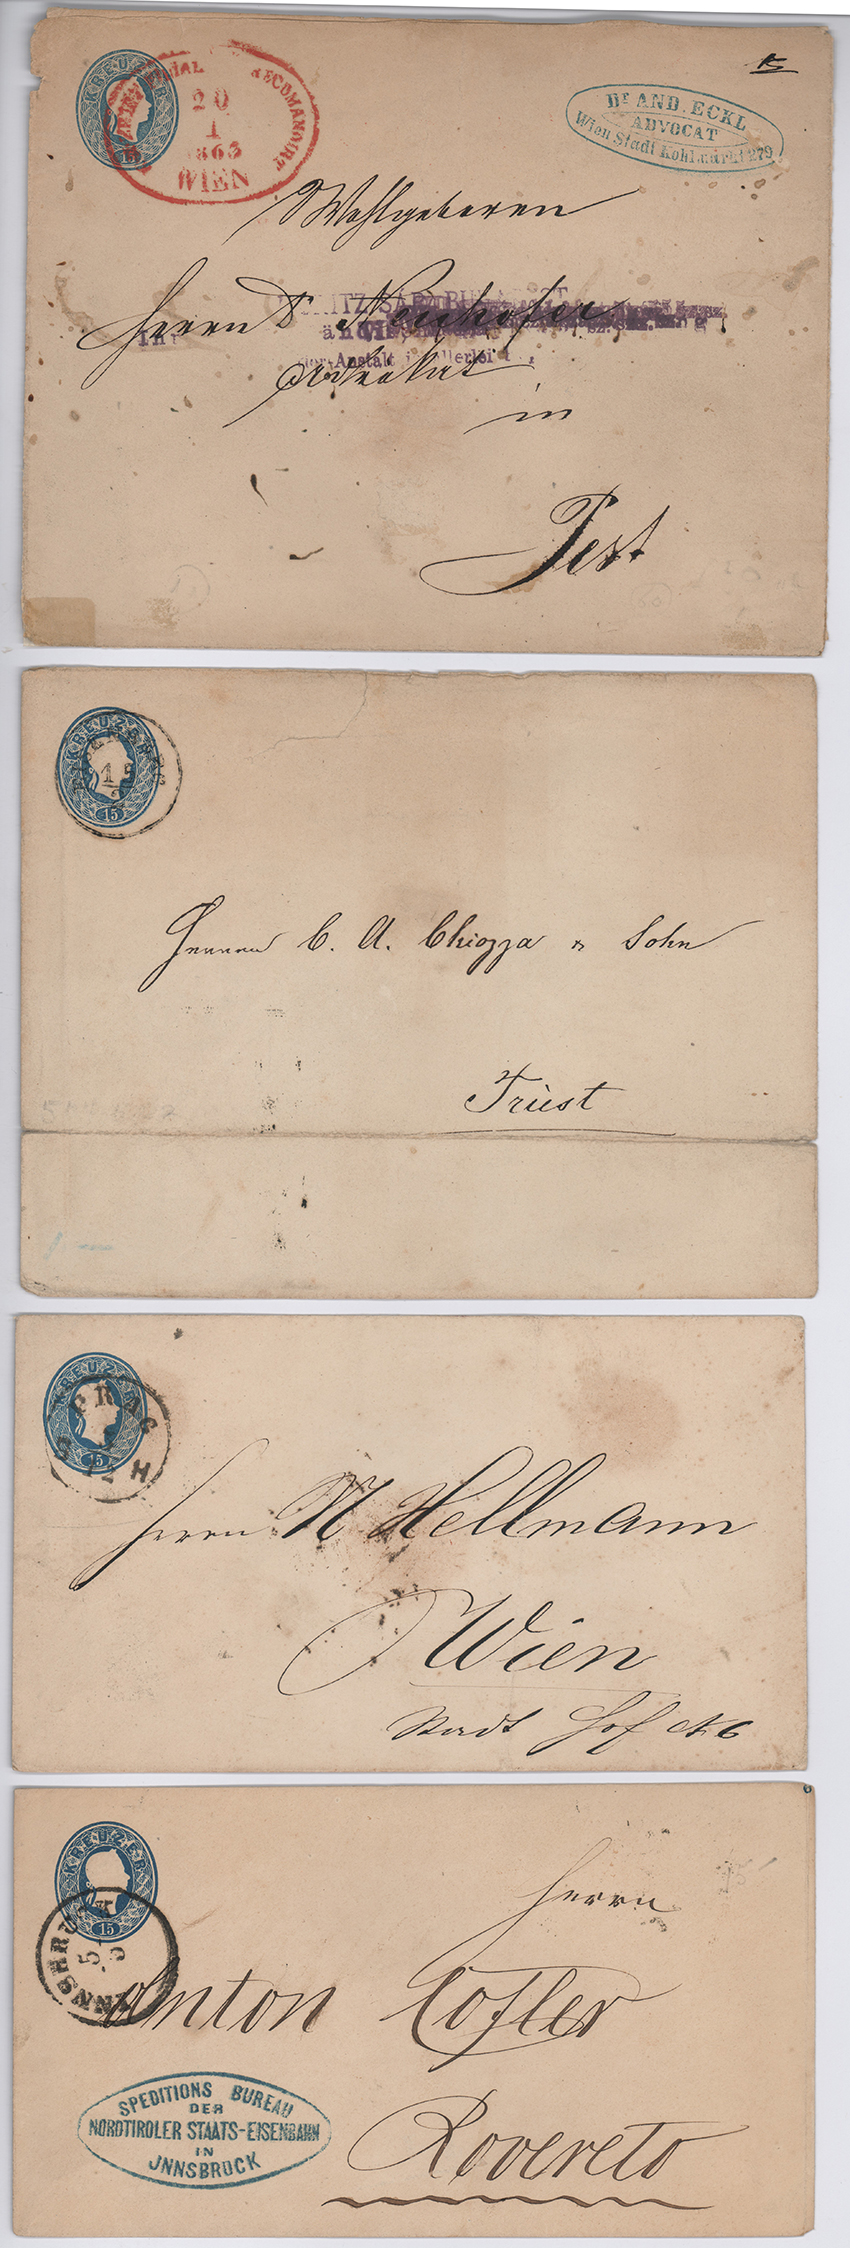 KREUZER
15
FILIAL RECOMANDIRT
20
1
1863
WIEN
15
Dr AND. ECKL
ADVOCAT
Wien Stadt Kohlmarkt 279
Wohlgeboren
Herrn Dr Neuhofer
Advokat
in
Pest
KREUZER
15
15
Herren C. A. Chiozza & Sohn
Triest
KREUZER
15
PRAG
12 H
Herrn M Hellmann
Wien
Stadt Hof N 6
KREUZER
15
INNSBRUCK
5
5
Herrn
Anton Cofler
Rovereto
SPEDITIONS BUREAU
DER
NORDTIROLER STAATS-EISENBAHN
IN
JNNSBRUCK